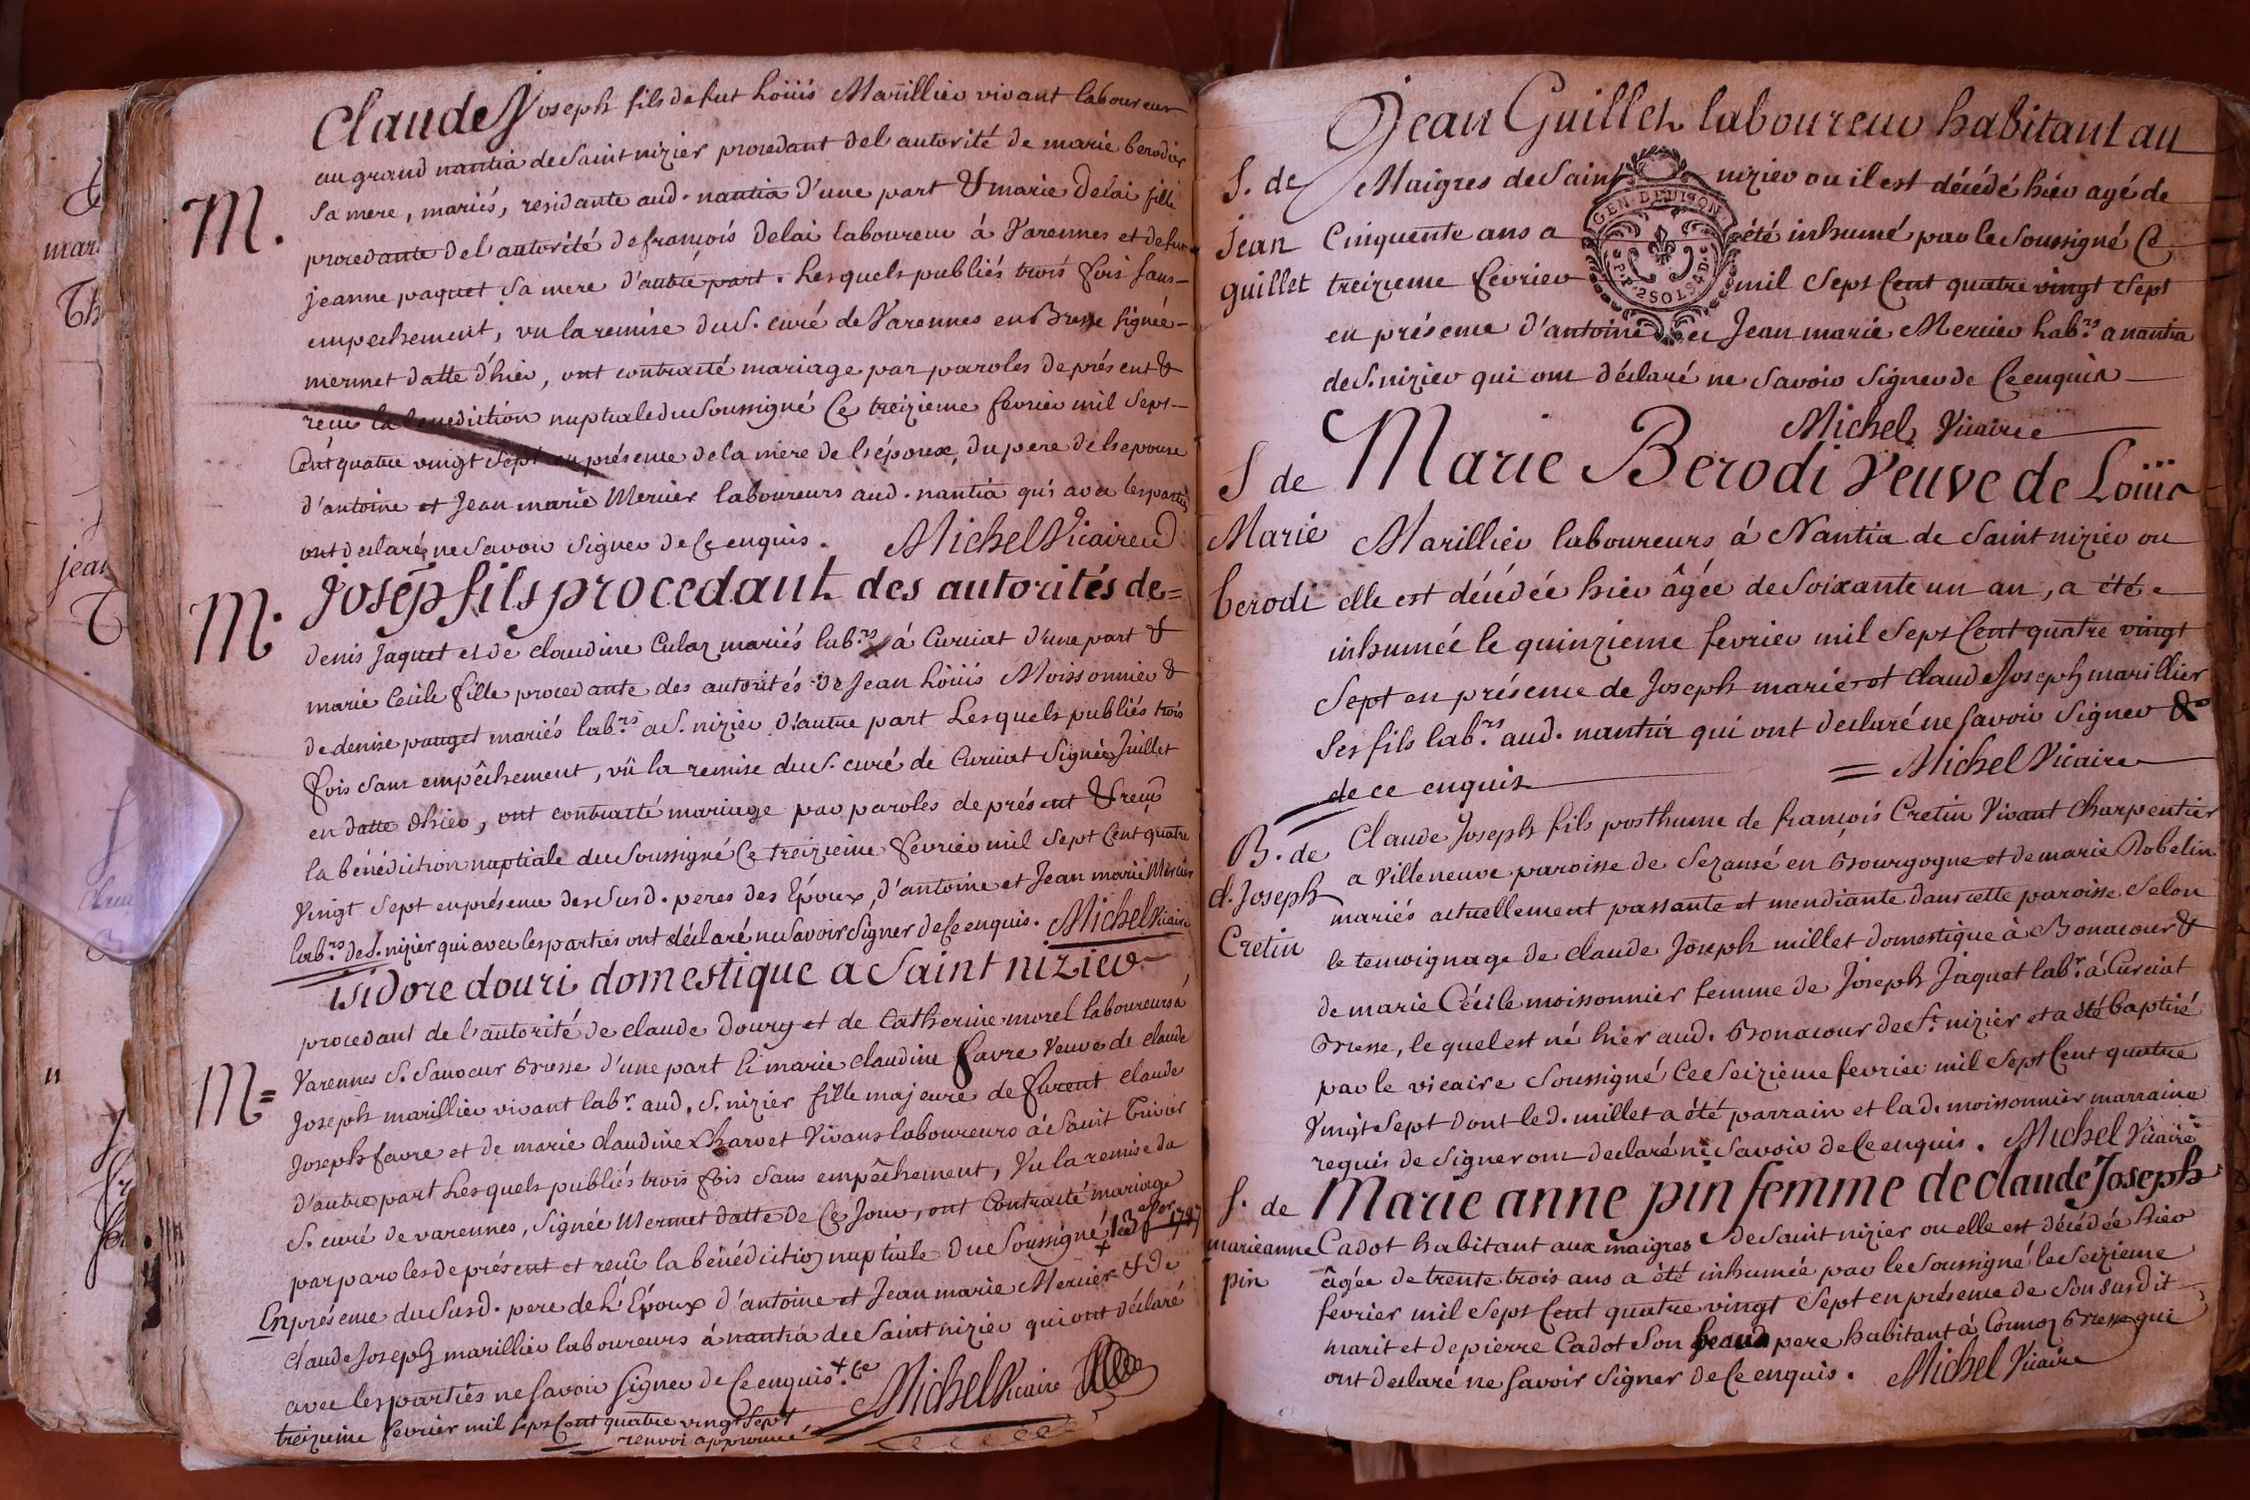 Claude Joseph fils de fut Loüis Marillier vivant laboureur
au grand nantia de Saint nizier procedant del autorité de marie berodier
M. Sa mere, mariés, residante aud. nantia d'une part & marie Delai fille
procedante del'autorité de françois delai laboureur à Varennes et de fut
jeanne paquet sa mere d'autre part. Lesquels publiés trois fois sans-
empechement, vu la remise du S. curé de Varennes en Bresse signée-
mermet datte d'hier, ont contracté mariage par paroles de présent &
reçu la benediction nuptiale du soussigné ce treizieme fevrier mil sept-
Cent quatre vingt sept en présence de la mere de l'époux, du pere de l'epouse
d'antoine et Jean marie Mercier laboureurs aud. nantia qui avec les parties
ont declaré ne savoir signer de ce enquis. Michel Vicaire
M. Joseph fils procedant des autorités de=
denis Jaquet et de claudine Culaz mariés labrs à Curciat d'une part &
marie Cecile fille procedante des autorités de Jean Loüis Moissonnier &
de denise pauget mariés labrs a S. nizier d'autre part Lesquels publiés trois
fois sans empêchement, vû la remise du S. curé de Curciat signée Juillet
en datte d'hier, ont contracté mariage par paroles de présent & reçu
la bénédiction nuptiale du soussigné ce treizieme fevrier mil sept Cent quatre
Vingt sept en présence des susd. peres des Epoux, d'antoine et Jean marie Mercier
labrs de S. nizier qui avec les parties ont déclaré ne savoir signer de ce enquis. Michel Vicaire
isidore douri domestique a Saint nizier
procedant de l'autorité de claude Doury et de Catherine morel laboureurs à
M= Varennes S. Sauveur Bresse d'une part & marie claudine favre Veuve de claude
Joseph marillier vivant labr. aud. S. nizier fille majeure de furent claude
Joseph favre et de marie claudine Charvet Vivans laboureurs à Saint Trivier
d'autre part Lesquels publiés trois fois sans empêchement, Vu la remise du
S. curé de varennes, signée Mermet datte de ce jour, ont contracté mariage
par paroles de présent et reçu la bénédiction nuptiale du soussigné
En présence du susd. pere de l'Epoux d'antoine et Jean marie Mercier & de
claude Joseph marillier laboureurs à nantia de Saint nizier qui ont déclaré
avec les parties ne savoir signer de ce enquis. + Ce
treizieme fevrier mil sept Cent quatre vingt sept Michel Vicaire
renvoi approuvé
Jean Guillet laboureur habitant au
S. de Maigres de Saint nizier ou il est décédé hier agé de
jean Cinquante ans a été inhumé par le soussigné Ce
guillet treizieme fevrier mil sept Cent quatre vingt sept
GEN. DE DIJON
P.P. 2 SOLS 4 D.
en présence d'antoine et Jean marie Mercier labrs a nantia
de S. nizier qui ont déclaré ne savoir signer de ce enquis
Michel Vicaire
S de Marie Berodi Veuve de Loüis
Marie Marillier laboureurs à Nantia de Saint nizier ou
berodi elle est décédée hier âgée de soixante un an, a été
inhumée le quinzieme fevrier mil sept Cent quatre vingt
sept en présence de Joseph marie et claude Joseph marillier
ses fils labrs aud. nantia qui ont declaré ne savoir signer
de ce enquis = Michel Vicaire
B. de Claude Joseph fils posthume de françois Cretin Vivant charpentier
a Villeneuve paroisse de Sezansé en Bourgogne et de marie Robelin
cl. Joseph mariés actuellement passante et mendiante dans cette paroisse selon
Cretin le temoignage de claude Joseph millet domestique à Bonacour &
de marie Cécile moissonnier femme de Joseph Jaquet labr. à Curciat
Bresse, lequel est né hier aud. Bonacour de St nizier et a été baptisé
par le vicaire soussigné Ce seizieme fevrier mil sept Cent quatre
Vingt sept dont led. millet a été parrain et lad. moissonnier marraine
requis de signer ont declaré ne savoir de ce enquis. Michel Vicaire
S. de Marie anne pin femme de claude Joseph
marie anne Cadot habitant aux maigres de Saint nizier ou elle est décédée hier
pin âgée de trente trois ans a été inhumée par le soussigné le seizieme
fevrier mil sept Cent quatre vingt sept en présence de son susdit
marit et de pierre Cadot son beau pere habitant à Cormoz Bresse qui
ont declaré ne savoir signer de ce enquis. Michel Vicaire